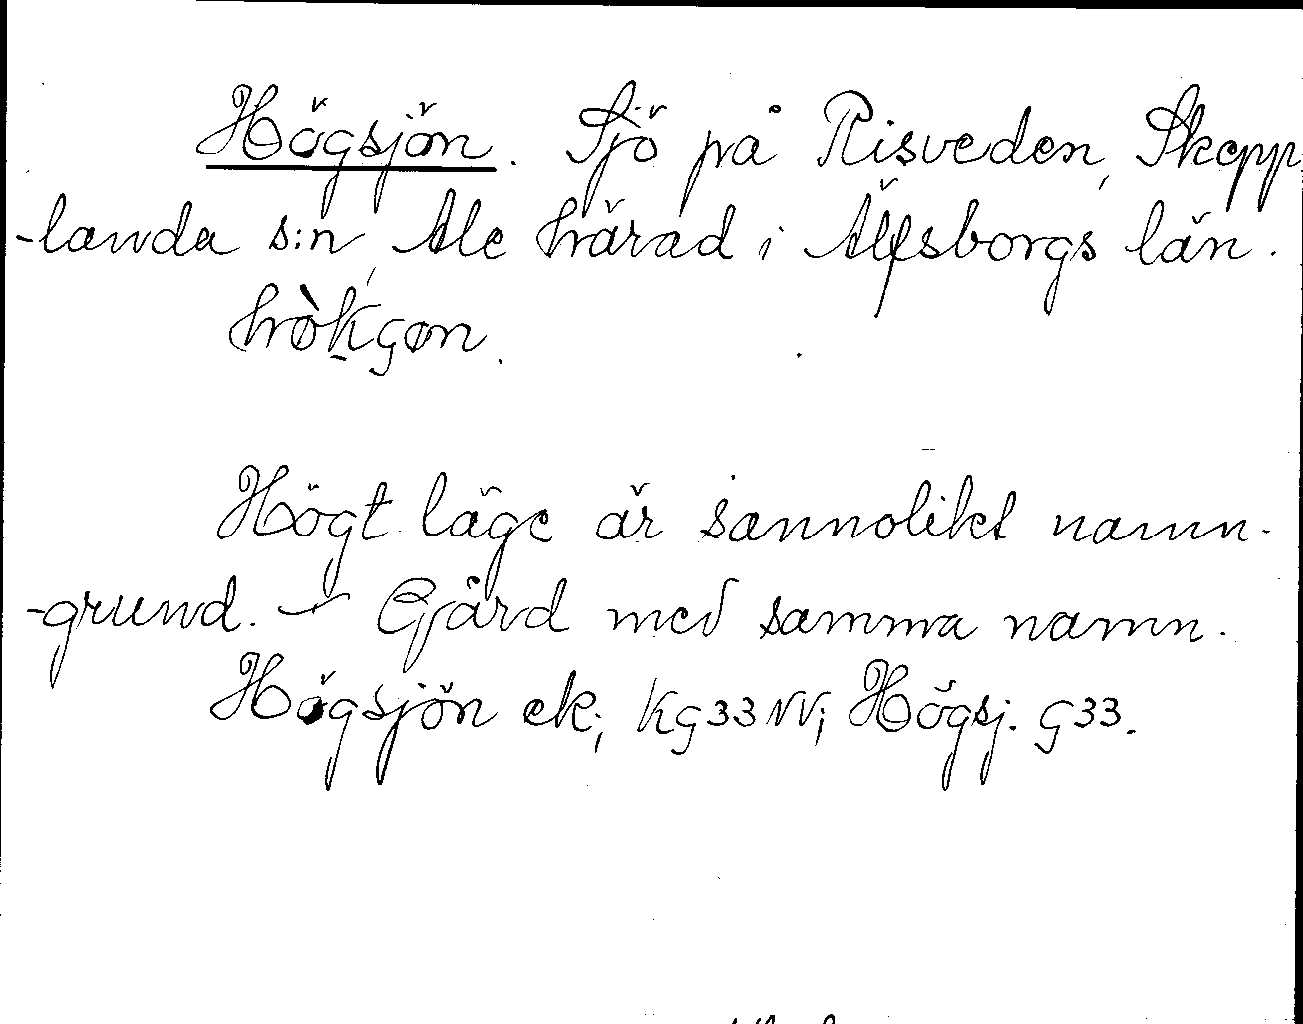 Högsjön. Sjö på Risveden, Skepp
-landa s:n, Ale härad i Älfsborgs län.
Högt läge är sannolikt namn-
-grund. — Gård med samma namn.
Högsjön ek; Kg33NV; Högsj. G33.